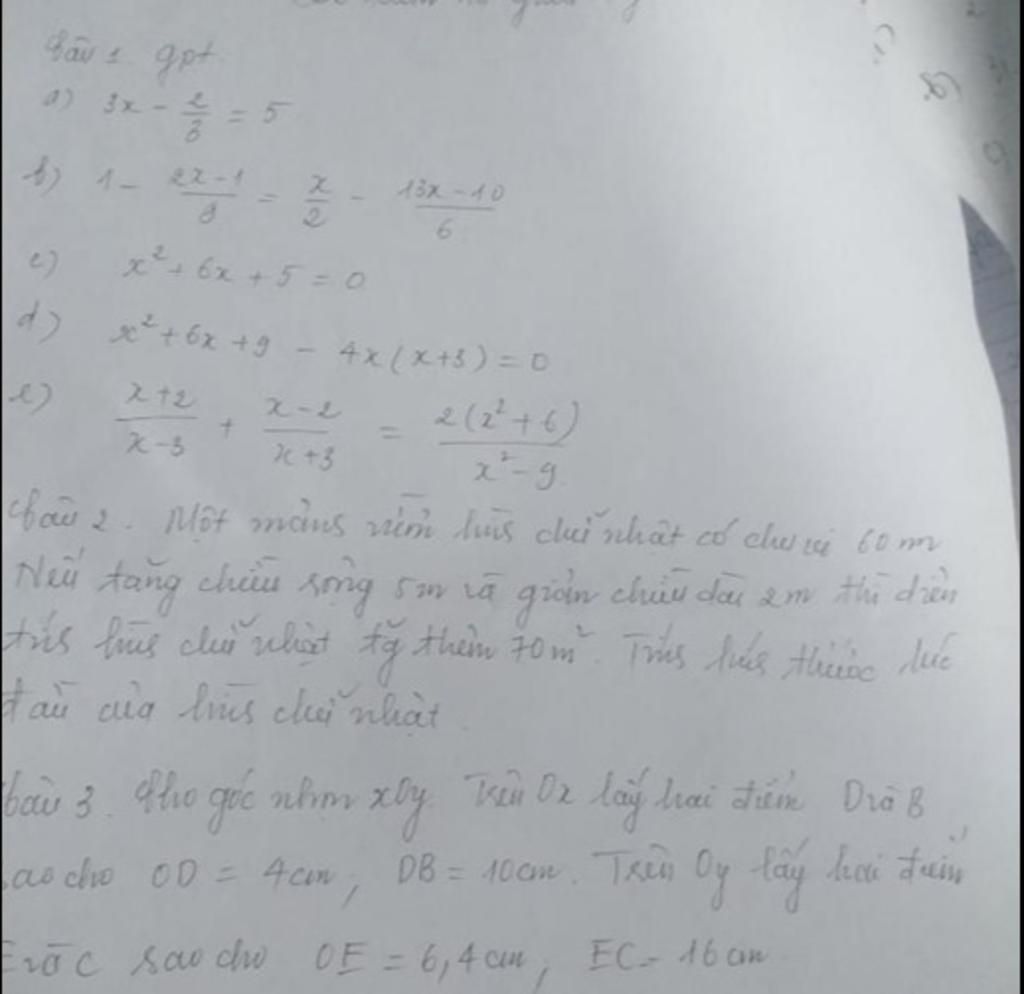 Câu 1 gpt
a) 3x - 2/3 = 5
b) 1 - (2x-1)/9 = x/2 - (13x-10)/6
c) x² + 6x + 5 = 0
d) x² + 6x + 9 - 4x(x+3) = 0
e) (x+2)/(x-3) + (x-2)/(x+3) = 2(x²+6)/(x²-9)
Câu 2. Một mảnh vườn hình chữ nhật có chu vi 60 m
Nếu tăng chiều rộng 5m và giảm chiều dài 2m thì diện
tích hình chữ nhật tg thêm 70m². Tính kích thước lúc
đầu của hình chữ nhật.
bài 3. Cho góc nhọn xOy. Trên Ox lấy hai điểm D và B
sao cho OD = 4cm, DB = 10cm. Trên Oy lấy hai điểm
E và C sao cho OE = 6,4cm, EC = 16cm